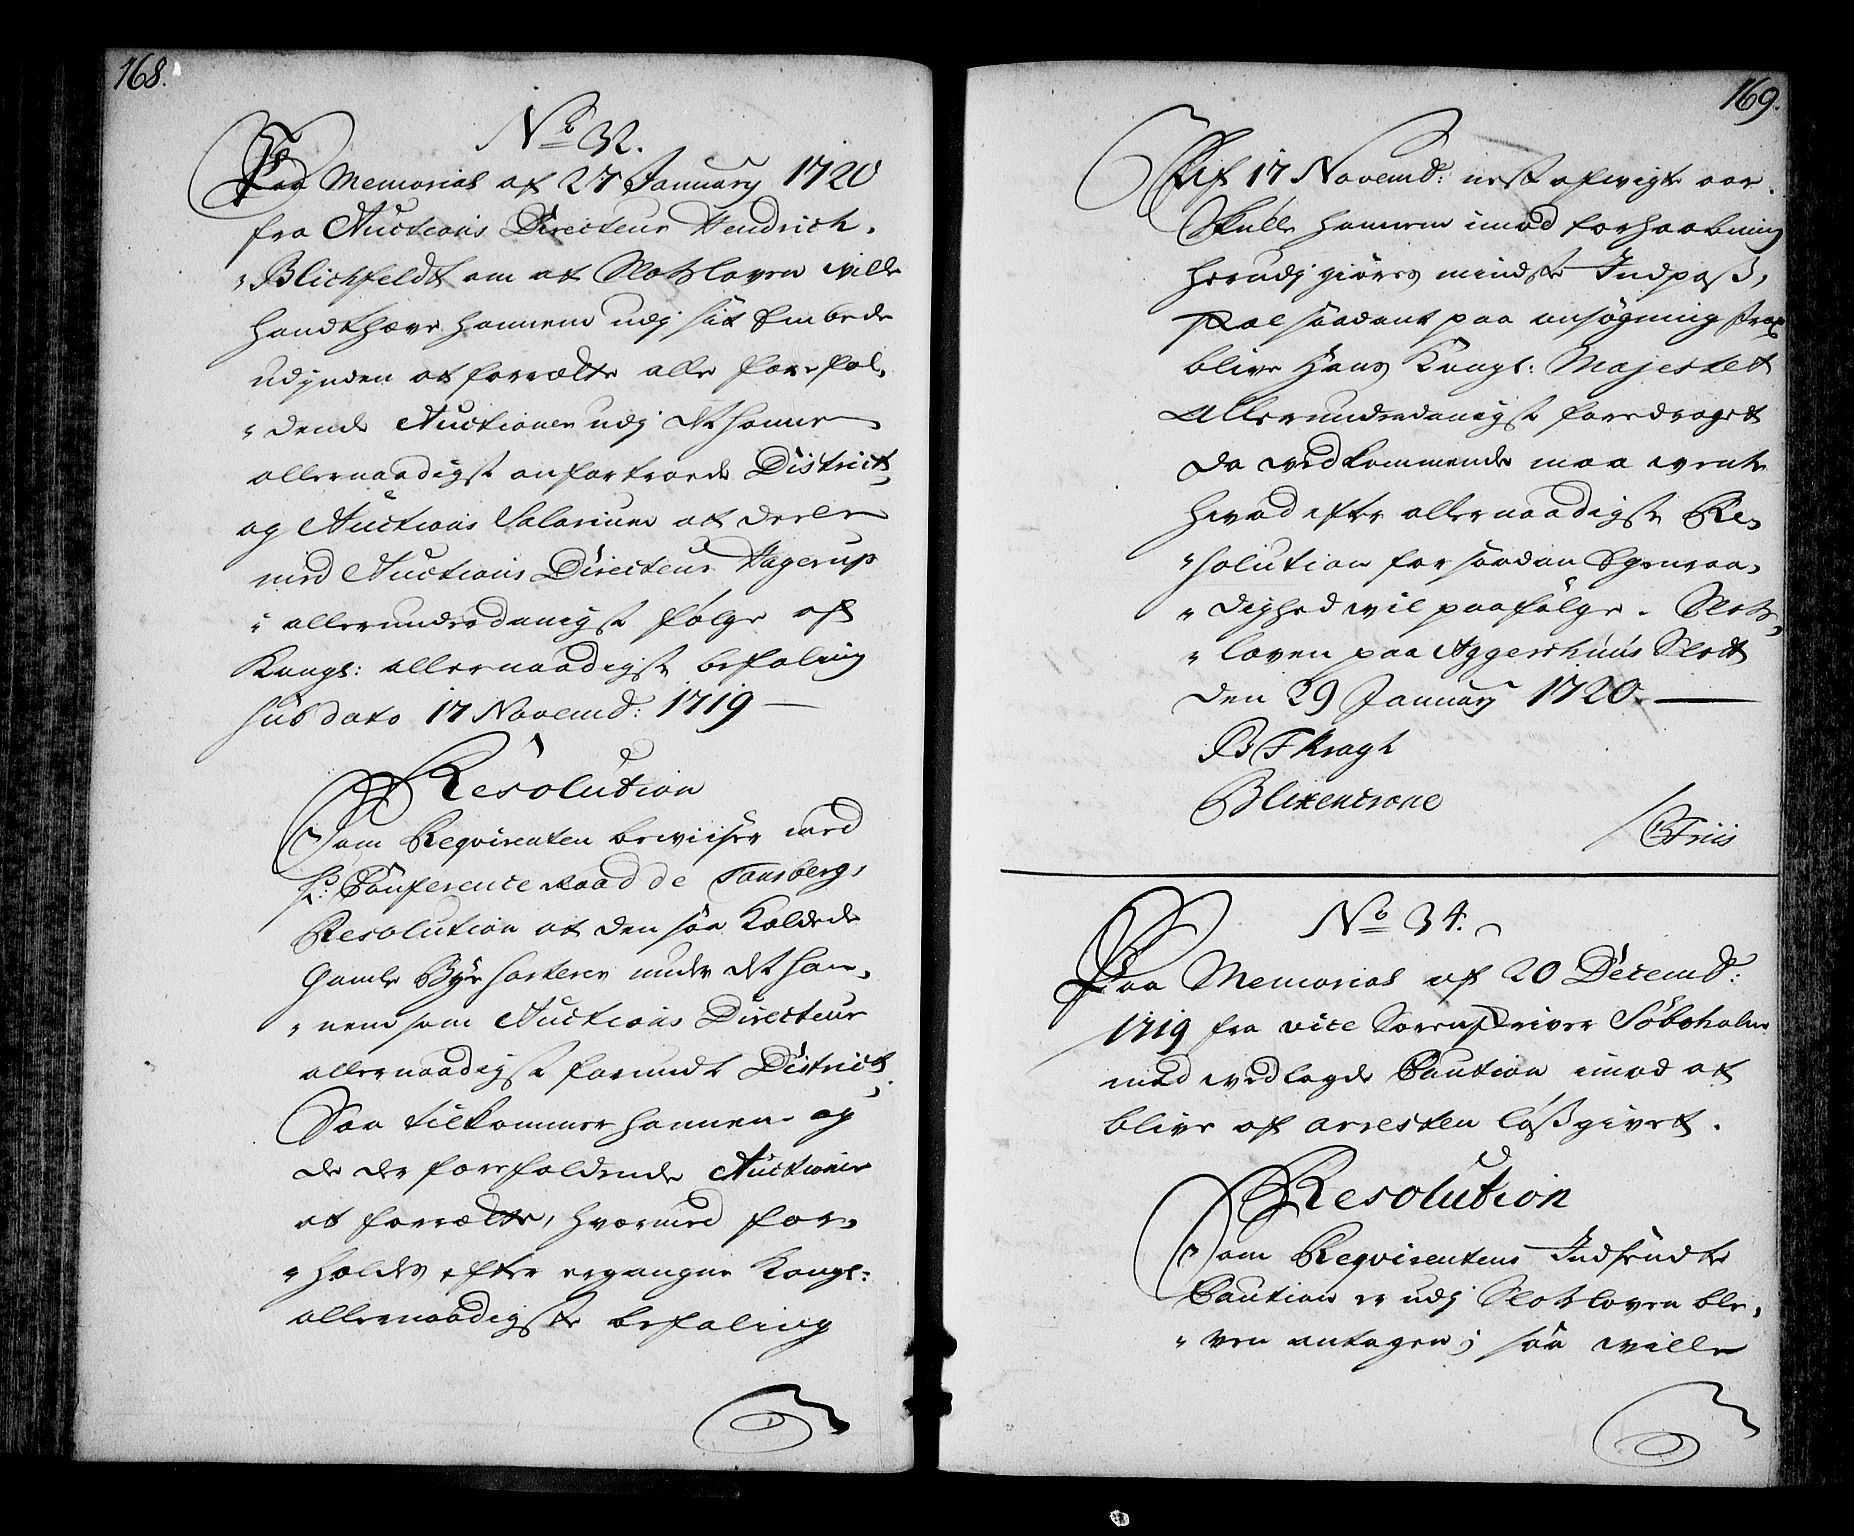 168.
No 32.
Paa Memorial af 27 January 1720
fra Auctions Directeur Hendrich
Blichfeldt om at Slotzloven wille
handthæve hannem udj sit Embede
udjnden at forrætte alle forefal-
"dende Auctioner udj det hanne
allernaadigst anfortroede District,
og Auctions Salarium at deele
med Auctions Directeur Hagerup
i allerunderdanigst følge af
Kongl: allernaadigste befaling
sub dato 17 Novemb: 1719 —
Resolution
Som Reqvirenten beviiser med
Hr: Conference Raad de Tonsberg,
Resolution at den saa Kaldede
Gamle Bye sorterer under det han-
"nem som Auctions Directeur
allernaadigst forundt District,
Saa tilkommer hannem og
de der forefaldende Auctioner
at forrætte, hvormed for-
"holdes efter ergangne Kongl:
allernaadigste befaling
169.
Af 17 Novemb: nest afwigte aar.
Skulle hannem imod forhaabning
herudj giøres mindste Indpass,
skal saadant paa ansøgning strax
blive Hans Kongl: Majestet
Allerunderdanigst foredraget
da wedkommende maa wente
hvad efter allernaadigste Re-
"solution for saadan Egenraa-
"dighed wil paafølge. Slotz-
"loven paa Aggershuus Slott
den 29 January 1720 —
Kragh
Blixencrone
Friis
No 34.
Paa Memorial af 20 Decemb:
1719 fra vice Sorenskriver Søboholm
med wedlagde Caution imod at
blive af arresten løssgivet.
Resolution
Som Reqvirentens Indsendte
Caution er udj Slotzloven ble-
"ven antagen; saa wille